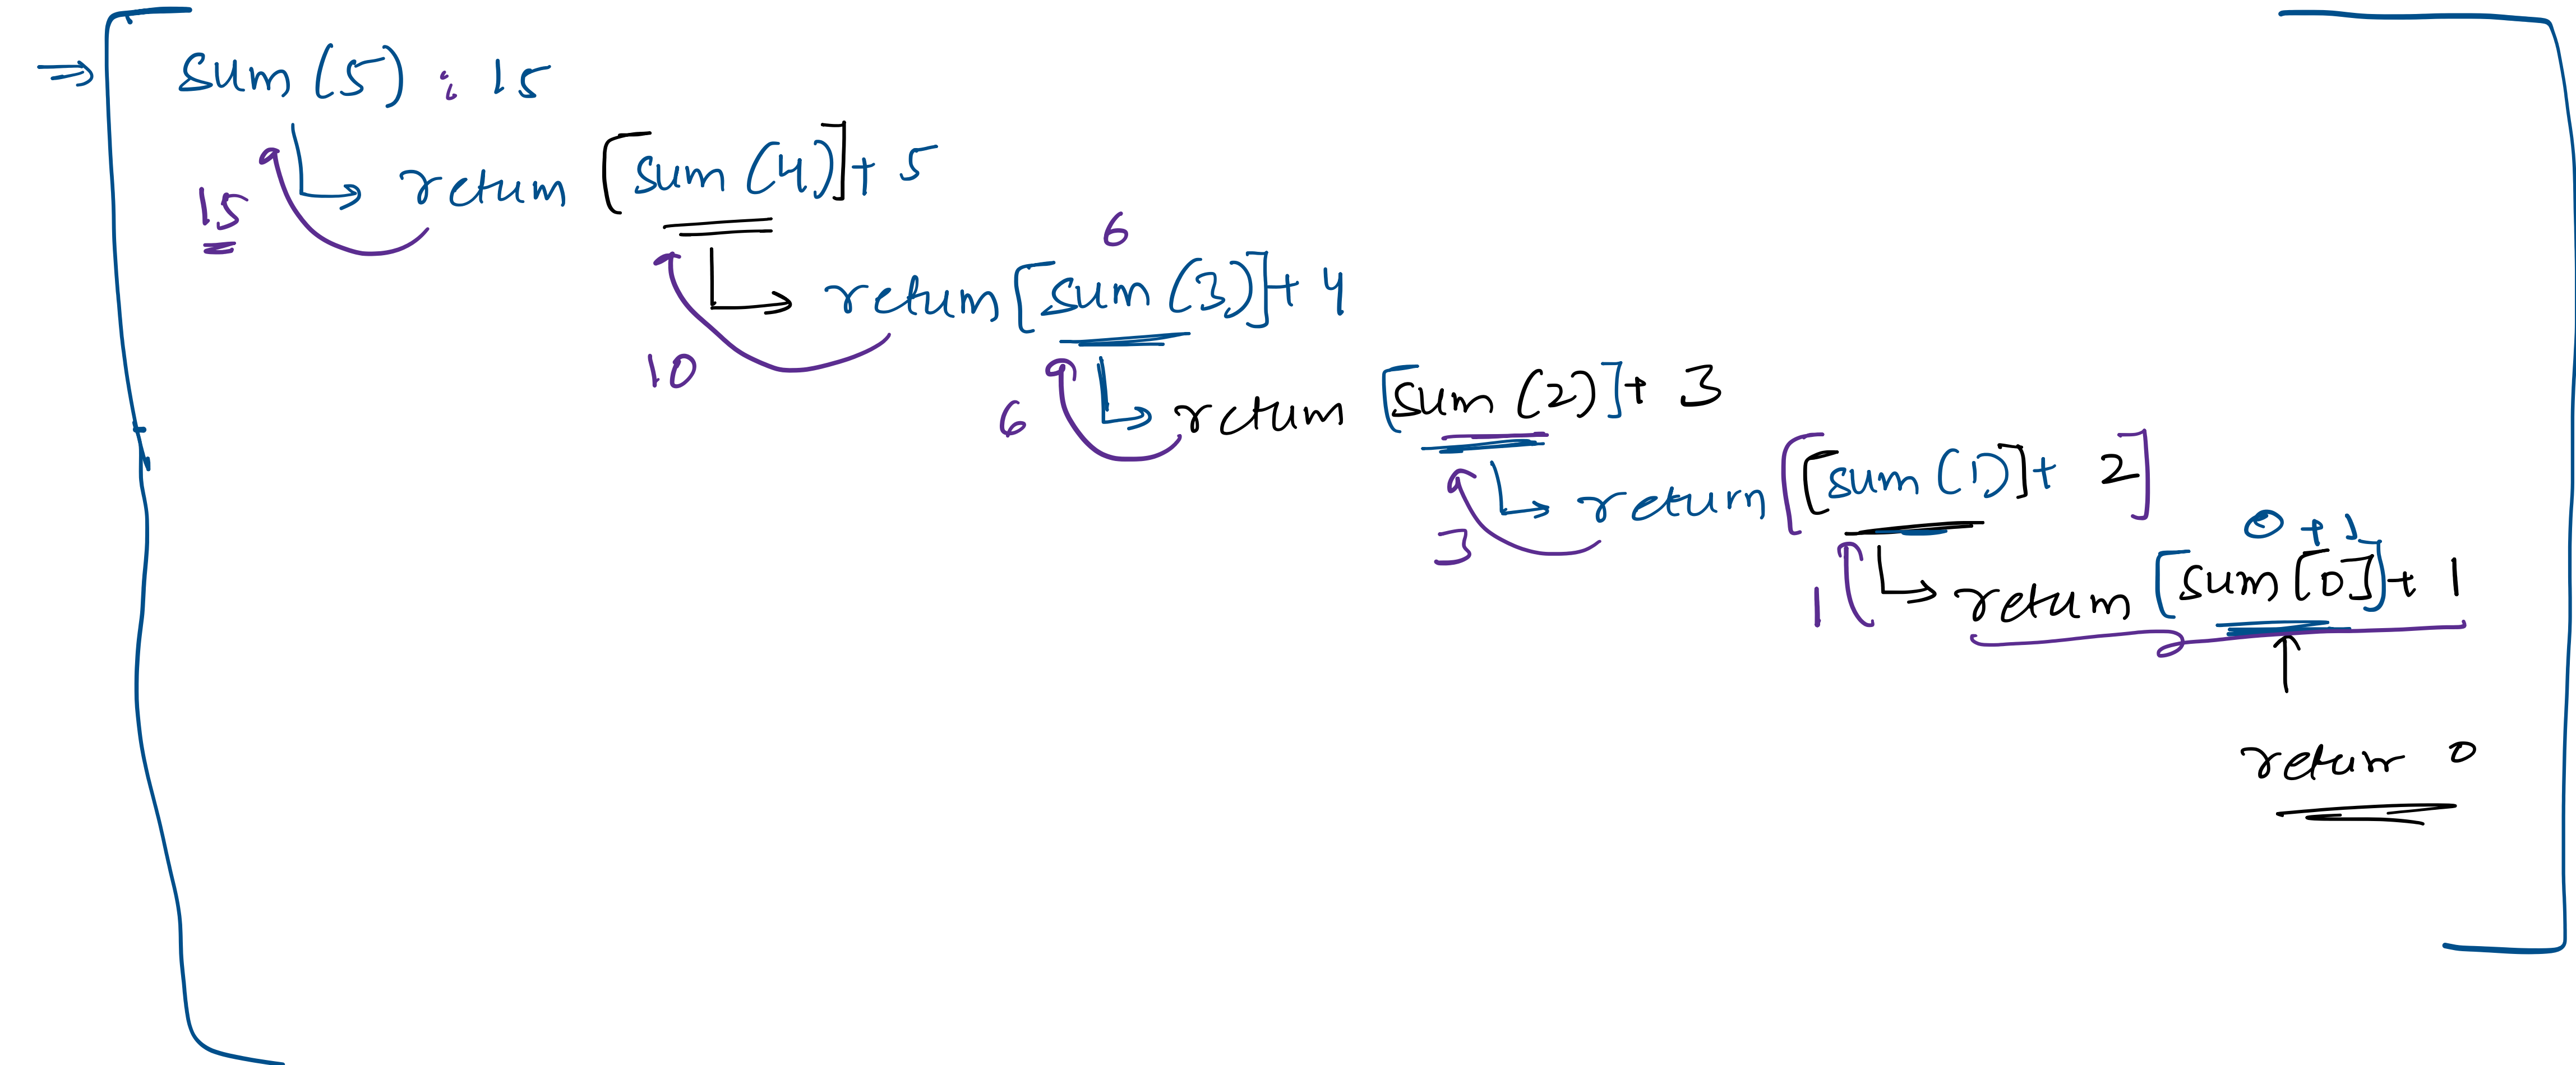 ⇒ sum (5) : 15
15
return [sum (4)] + 5
6
return [sum (3)] + 4
10
6
return [sum (2)] + 3
3
return [[sum (1)] + 2]
0 + 1
1
return [sum [0]] + 1
return 0